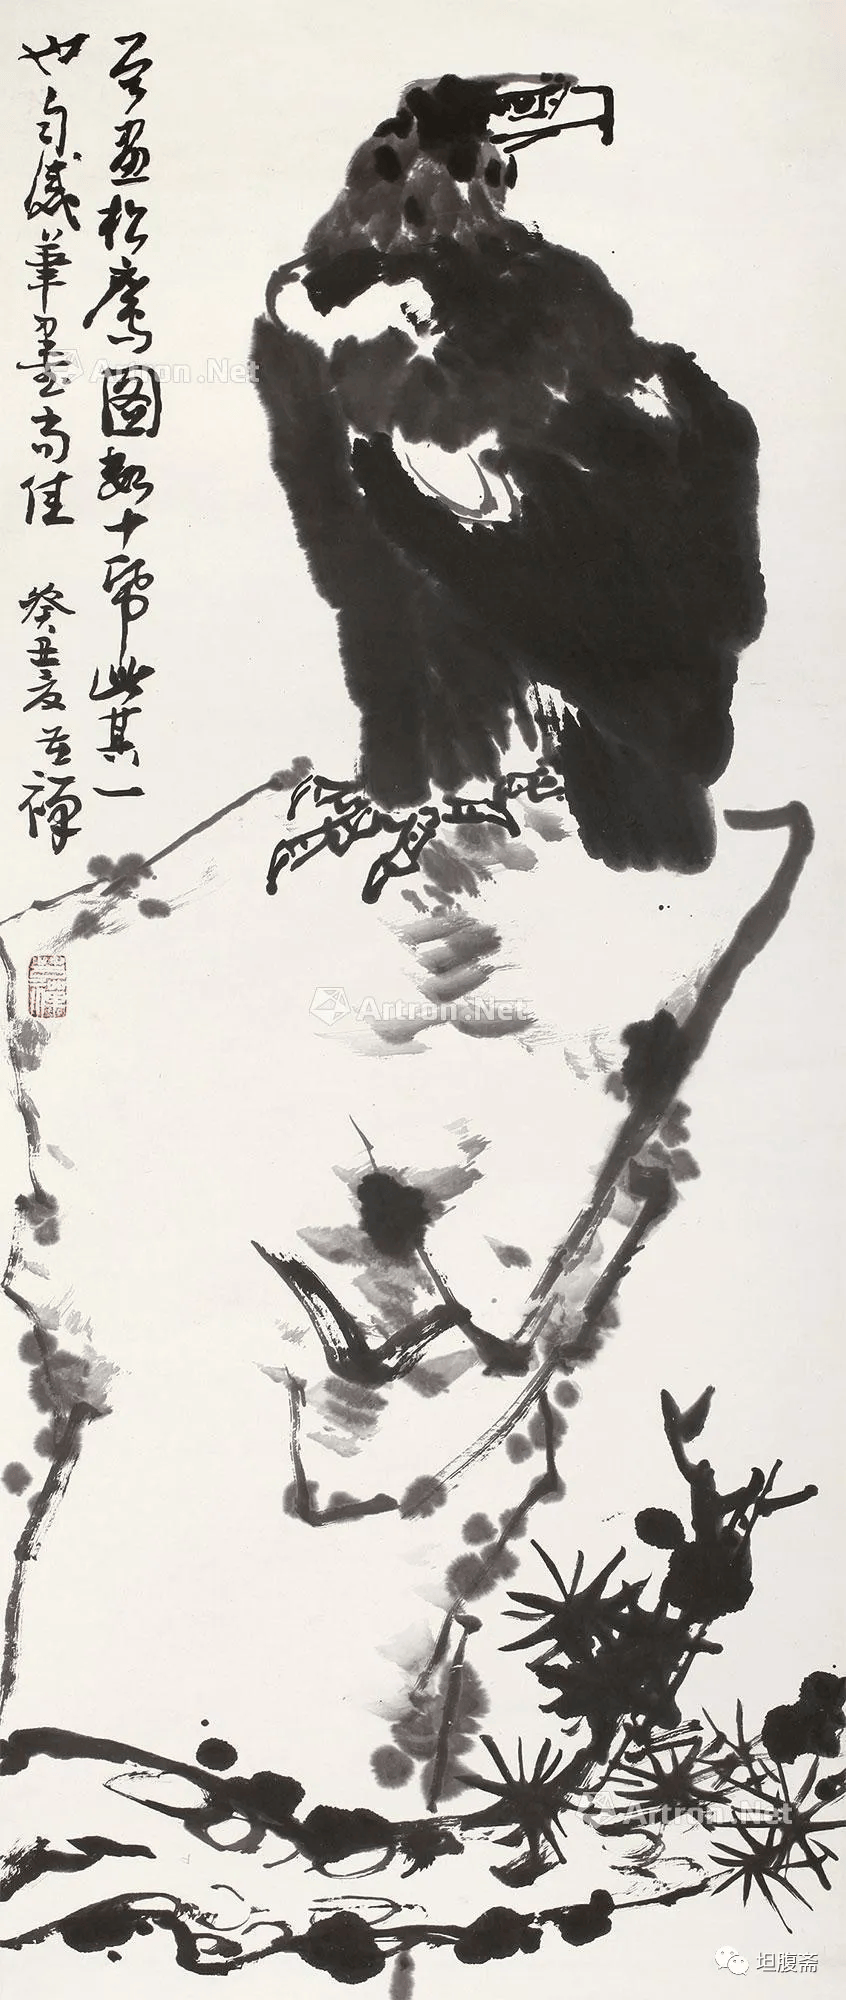 吾畫松鷹图数十帋此其一
也自感筆墨尚佳 癸丑夏苦禪
苦禪
Artron.Net
Artron.Net
Artron.Net
坦腹斋